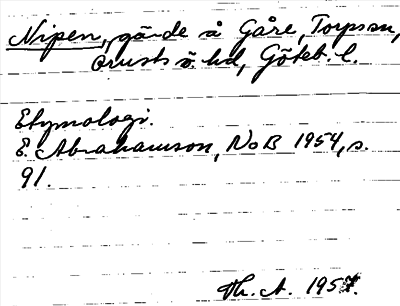 Nipen, gärde å Gåre, Torpssn,
Orusts ö. hd, Göteb. l.
Etymologi.
E. Abrahamson, NoB 1954, s.
91.
Th. A. 1957.